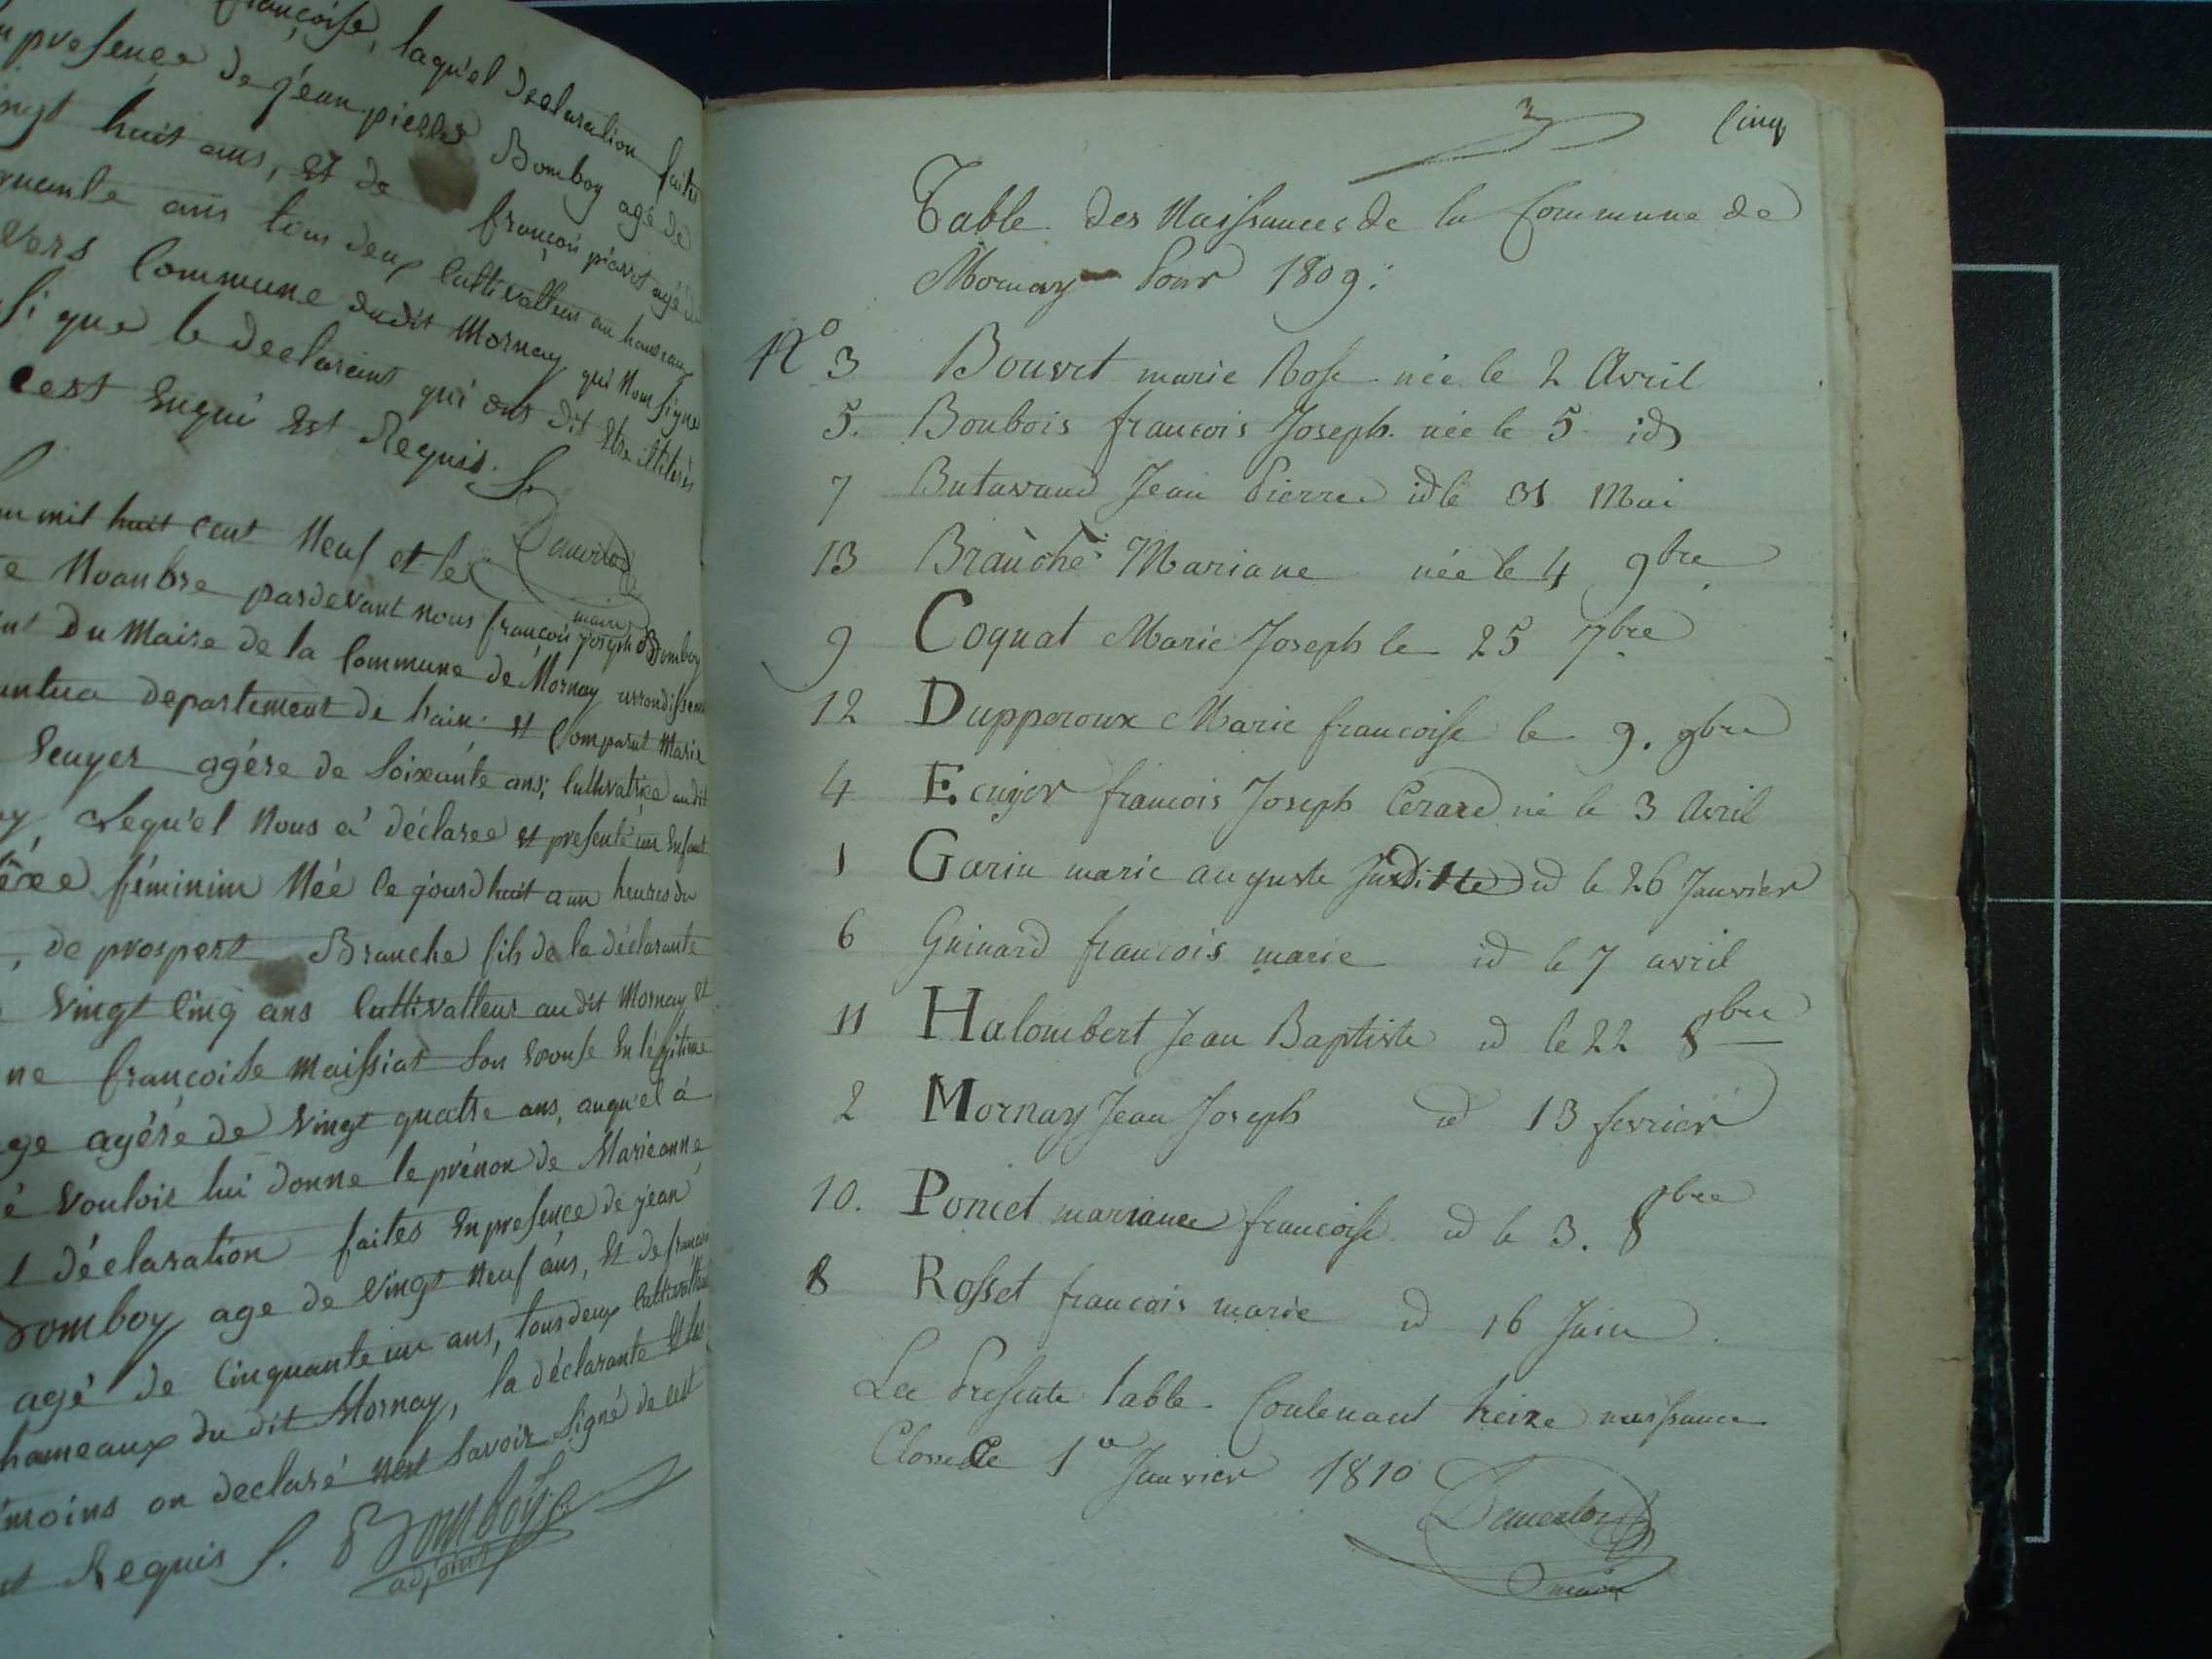 françoise, laqu'el declaration faites
presence de jean pierre Bomboy agé de
ingt huit ans, et de françois piarot agé de
quante ans tous deux Cultivatteur au hameau
vers Commune dudit Mornay qui Nom signe
si que le declarant qui ont dit Etre illiterés
cest Enqui Est Requis. S.
mil huit cent Neuf et le
e Novanbre pardevant nous françois joseph Bomboy
nt Du Maire de la Commune de Mornay arrondissem
antua departement de lrain. et Comparut Marie
Ecuyer agére de Soixante ans; Cultivatrice audit
ay, Lequ'el Nous a' déclaree et presenté un Enfant
êxe féminim Née le jourdhuit a un heures du
, de prospert Branche fils de la déclarante
vingt Cinq ans Cultivatteur audit Mornay et
ne françoise Maissiat Son Epouse En légitime
age agére de vingt quatre ans, auqu'el á
é vouloir lui donne le prénon de Marieanne
l déclaration faites En presence de jean
Bomboy age de vingt Neuf ans, Et de françois
agé de Cinquante un ans, tous deux Cultivatteur
hameaux du dit Mornay, la déclarante Et les
émoins on declaré nest savoir Signé de cest
st Requis S. Bomboy
adjoint
3 Cinq
Table des Naissances de la Commune de
Mornay Pour 1809:
No 3 Bouvet marie Rose née le 2 Avril
5. Boubois francois Joseph. née le 5 id
7 Butavand Jean Pierre id le 31 Mai
13 Branche Mariane née le 4 9bre
9 Coquat Marie Joseph le 25 7bre
12 Dupperoux Marie francoise le 9. 9bre
4 Ecuyer francois Joseph Cerard né le 3 Avril
1 Garin marie auguste Juditte id le 26 Janvier
6 Guinard francois marie id le 7 avril
11 Halombert Jean Baptiste id le 22 8bre
2 Mornay Jean Joseph id 13 fevrier
10. Poncet mariane francoise id le 3. 8bre
8 Rosset francois marie id 16 Juin
La Presente table Contenant treize naissance
Close le 1er Janvier 1810
maire